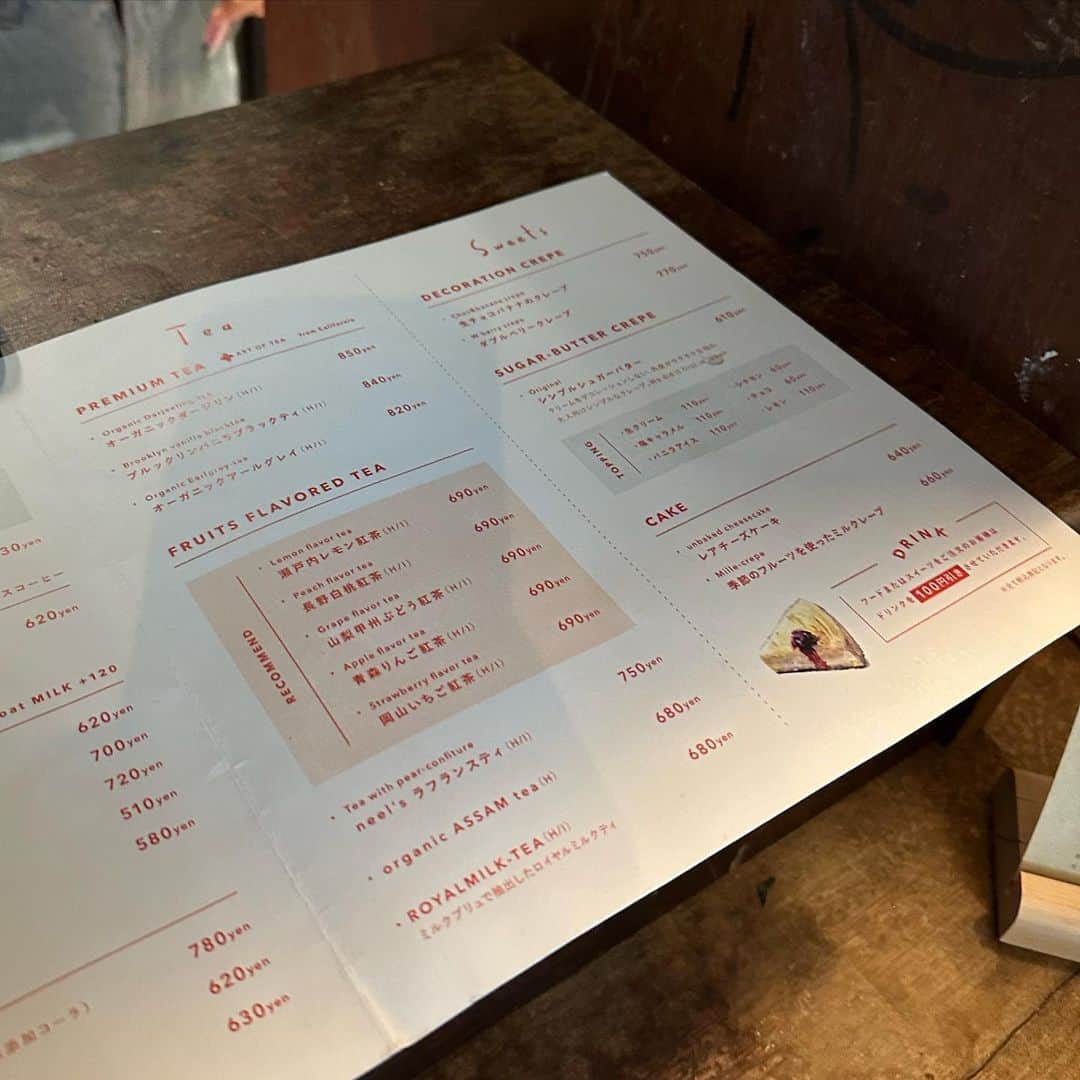 30yen
スコーヒー
620yen
oat MILK +120
620yen
700yen
720yen
510yen
580yen
780yen
620yen
添加コーラ)
630yen
Tea
PREMIUM TEA ART OF TEA from Kalifornia
Organic Darjeeling TEA
オーガニックダージリン(H/I) 850yen
Brooklyn vanilly blacktea
ブルックリンバニラブラックティ(H/I) 840yen
Organic Earlgrey tea
オーガニックアールグレイ(H/I) 820yen
FRUITS FLAVORED TEA
RECOMMEND
Lemon flavor tea
瀬戸内レモン紅茶(H/I) 690yen
Peach flavor tea
長野白桃紅茶(H/I) 690yen
Grape flavor tea
山梨甲州ぶどう紅茶(H/I) 690yen
Apple flavor tea
青森りんご紅茶(H/I) 690yen
Strawberry flavor tea
岡山いちご紅茶(H/I) 690yen
Tea with pear-confiture
neel's ラフランスティ(H/I) 750yen
organic ASSAM tea(H) 680yen
ROYALMILK-TEA(H/I) 680yen
ミルクブリュで抽出したロイヤルミルクティ
Sweets
DECORATION CREPE
Choco&banana crepe
生チョコバナナのクレープ 750yen
W berry crepe
ダブルベリークレープ 770yen
SUGAR-BUTTER CREPE
Original
シンプルシュガーバター 610yen
TOPING
・生クリーム 110yen ・シナモン 60yen
・塩キャラメル 110yen ・チョコ 60yen
・バニラアイス 110yen レモン 110yen
CAKE
unbaked cheesecake
レアチーズケーキ 640yen
Mille-crepe
季節のフルーツを使ったミルクレープ 660yen
DRINK
フードまたはスイーツをご注文のお客様は
ドリンクを 100円引き させていただきます。
※全て税込表記となります。